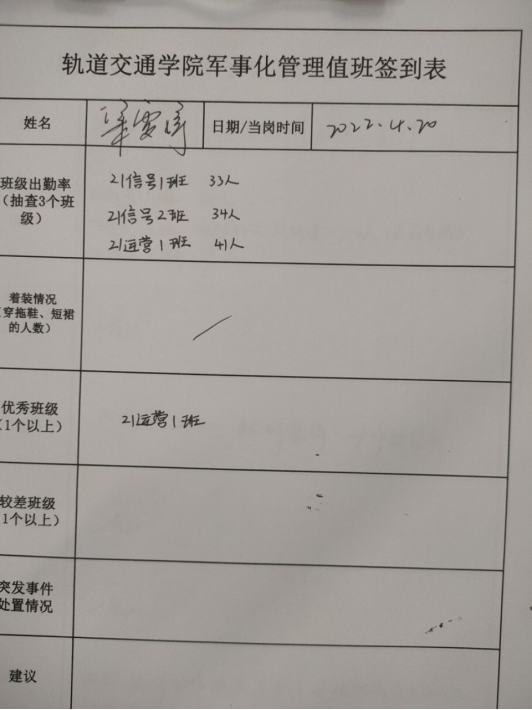 轨道交通学院军事化管理值班签到表
姓名
日期/当岗时间 2022.4.20
班级出勤率
(抽查3个班
级)
21信号1班 33人
21信号2班 34人
21运营1班 41人
着装情况
(穿拖鞋、短裙
的人数)
优秀班级
(1个以上)
21运营1班
较差班级
(1个以上)
突发事件
处置情况
建议